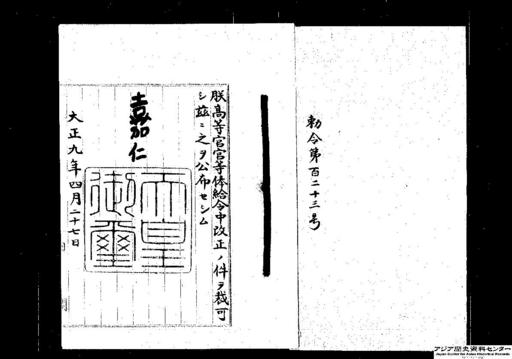 勅令第百二十三号
朕高等官官等俸給令中改正ノ件ヲ裁可
シ茲ニ之ヲ公布セシム
嘉仁
天皇御璽
大正九年四月二十七日
アジア歴史資料センター
Japan Center for Asian Historical Records